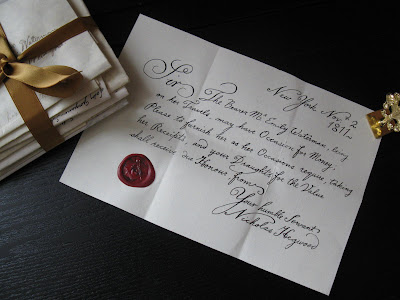 New York Nov. 22
1811
Sir
The Bearer Mrs Emily Waterman, being
on her Travels, may have Occasion for Money.
Please to furnish her as her Occasions require, taking
her Receipts, and your Draughts for the Value
shall receive due Honour from
Your humble Servant
Nicholas